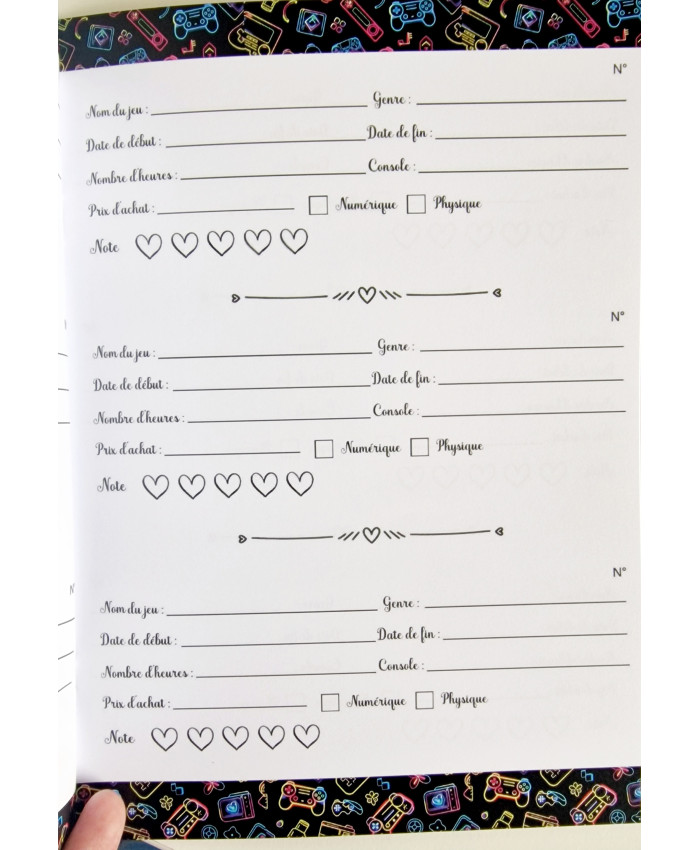 N°
Nom du jeu : Genre :
Date de début : Date de fin :
Nombre d'heures : Console :
Prix d'achat : Numérique Physique
Note
N°
Nom du jeu : Genre :
Date de début : Date de fin :
Nombre d'heures : Console :
Prix d'achat : Numérique Physique
Note
N°
Nom du jeu : Genre :
Date de début : Date de fin :
Nombre d'heures : Console :
Prix d'achat : Numérique Physique
Note